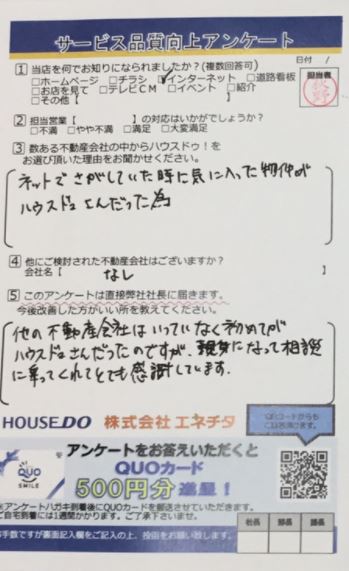 サービス品質向上アンケート
日付 /
1 当店を何でお知りになられましたか？(複数回答可)
□ホームページ □チラシ ☑インターネット □道路看板
□お店を見て □テレビCM □イベント □紹介
□その他【 】
担当者
2 担当営業【 】の対応はいかがでしょうか？
□不満 □やや不満 □満足 □大変満足
3 数ある不動産会社の中からハウスドゥ！を
お選び頂いた理由をお聞かせください。
ネットでさがしていた時に気に入った物件が
ハウスドゥさんだった為
4 他にご検討された不動産会社はございますか？
会社名【 なし 】
5 このアンケートは直接弊社社長に届きます。
今後改善した方がいい所を教えてください。
他の不動産会社はいっていなく初めてが
ハウスドゥさんだったのですが、親身になって相談
に乗ってくれてとても感謝しています。
HOUSEDO 株式会社 エネチタ
QRコードからも
アンケートをお答えいただくと
QUOカード
500円分 進呈！
QUO
SMILE
※アンケートハガキ到着後にQUOカードを郵送させていただきます。
ご自宅到着には1週間かかります。ご了承下さいませ。
手数ですが裏面記入欄をご記入の上、投函をお願い致します。
社長 部長 課長